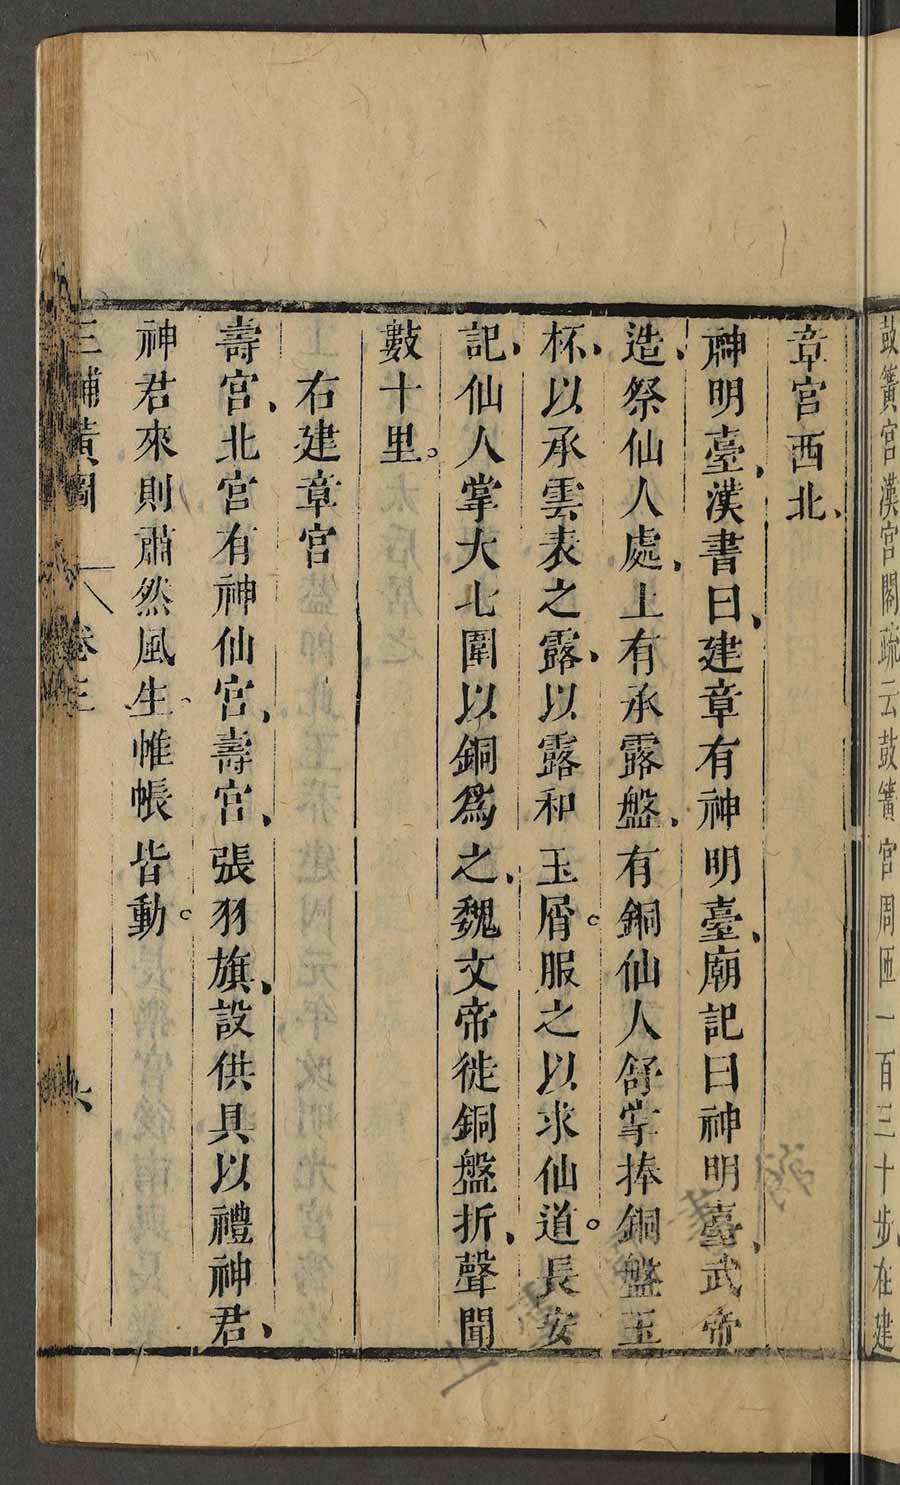 鼓簧宮漢宮閣疏云鼓簧宮周匝一百三十步在建
章宮西北
神明臺漢書曰建章有神明臺廟記曰神明臺武帝
造祭仙人處上有承露盤有銅仙人舒掌捧銅盤玉
杯以承雲表之露以露和玉屑服之以求仙道長安
記仙人掌大七圍以銅爲之魏文帝徙銅盤折聲聞
數十里
右建章宮
壽宮北宮有神仙宮壽宮張羽旗設供具以禮神君
神君來則肅然風生帷帳皆動
三輔黃圖 卷三